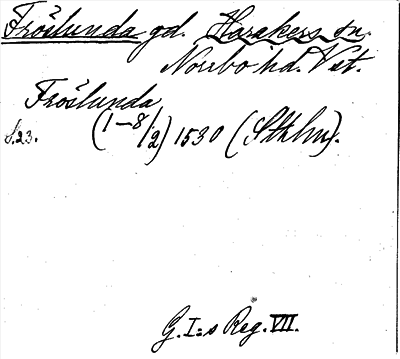 Fröslunda gd. Harakers sn.
Norrbo hd. Vst.
Fröslunda
S.23. (1–8/2) 1530 (Sthlm).
G. I:s Reg. VII.